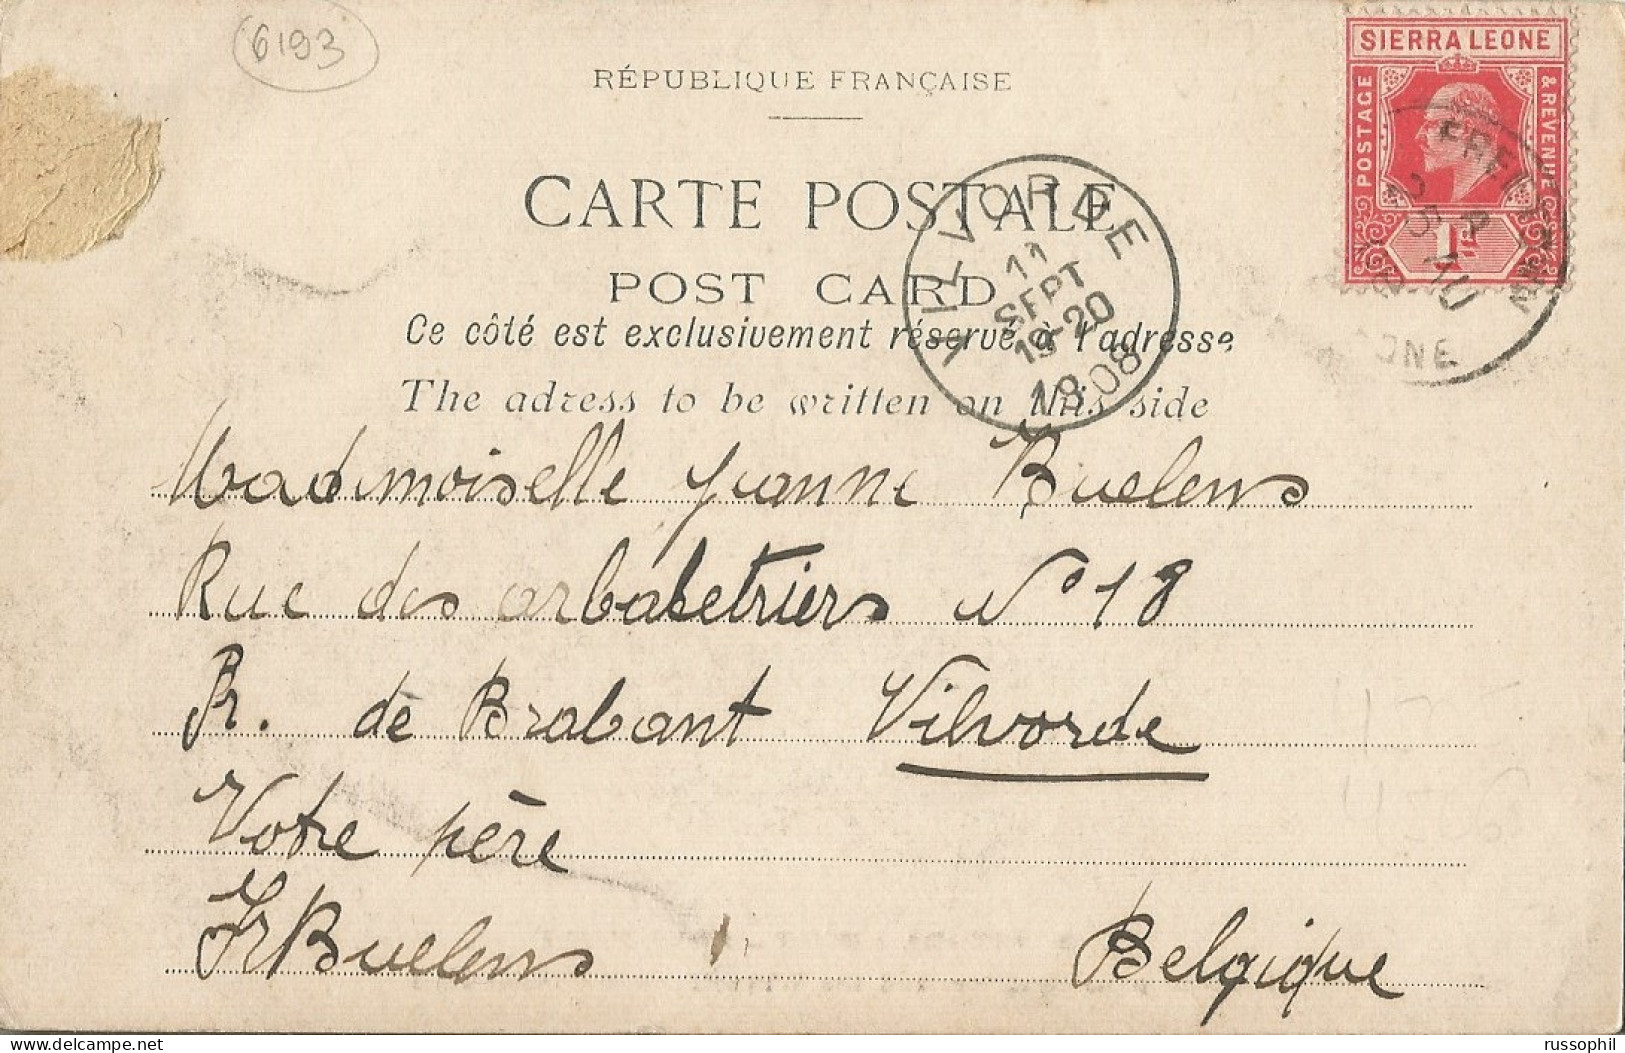 6193
RÉPUBLIQUE FRANÇAISE
CARTE POSTALE
POST CARD
Ce côté est exclusivement réservé à l'adresse
The adress to be written on this side
SIERRA LEONE
POSTAGE & REVENUE
1d
FREETOWN
A
25 AU
08
VILVORDE
11
SEPT
19-20
1908
Mademoiselle Jeanne Buelens
Rue des arbaletriers N° 18
P. de Brabant Vilvorde
Votre père
Fr Buelens
Belgique
russophil
delcampe.net